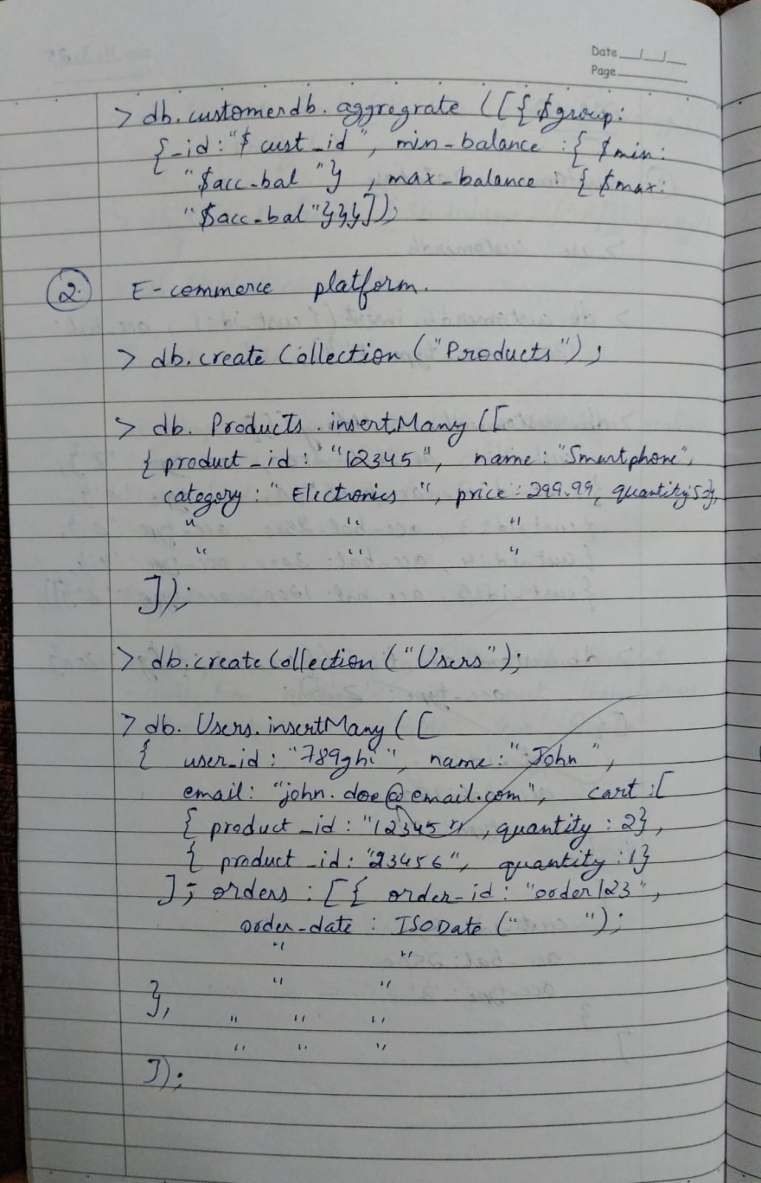 Date __/__/__
Page
> db.customerdb. aggregrate ([{ $group:
{_id:"$ cust_id", min-balance :{ $min:
"$acc-bal "} , max-balance : { $max:
"$acc-bal"}}}]);
2. E-commerce platform.
> db.create Collection ("Products");
> db. Products .insertMany ([
{ product_id : "12345", name: "Smartphone",
category: " Electronics ", price : 299.99, quantity:5},
" " "
" " "
]);
> db.create Collection ("Users");
> db. Users.insertMany ([
{ user_id : "789ghi", name: " John ",
email: "john.doe@email.com", cart :[
{ product_id : "12345", quantity : 2},
{ product_id: "23456", quantity :1}
]; orders : [{ order-id : "order123",
order-date : ISODate (" ");
" "
" "
},
" " "
" " "
]);